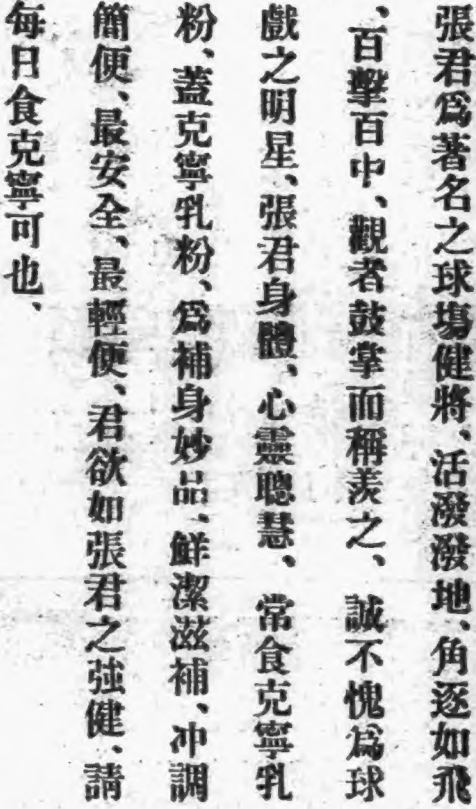 張君爲著名之球塲健將、活潑潑地、角逐如飛
、百擊百中、觀者鼓掌而稱羡之、誠不愧爲球
戲之明星、張君身體、心靈聰慧、常食克寧乳
粉、蓋克寧乳粉、爲補身妙品、鮮潔滋補、冲調
簡便、最安全、最輕便、君欲如張君之強健、請
每日食克寧可也、